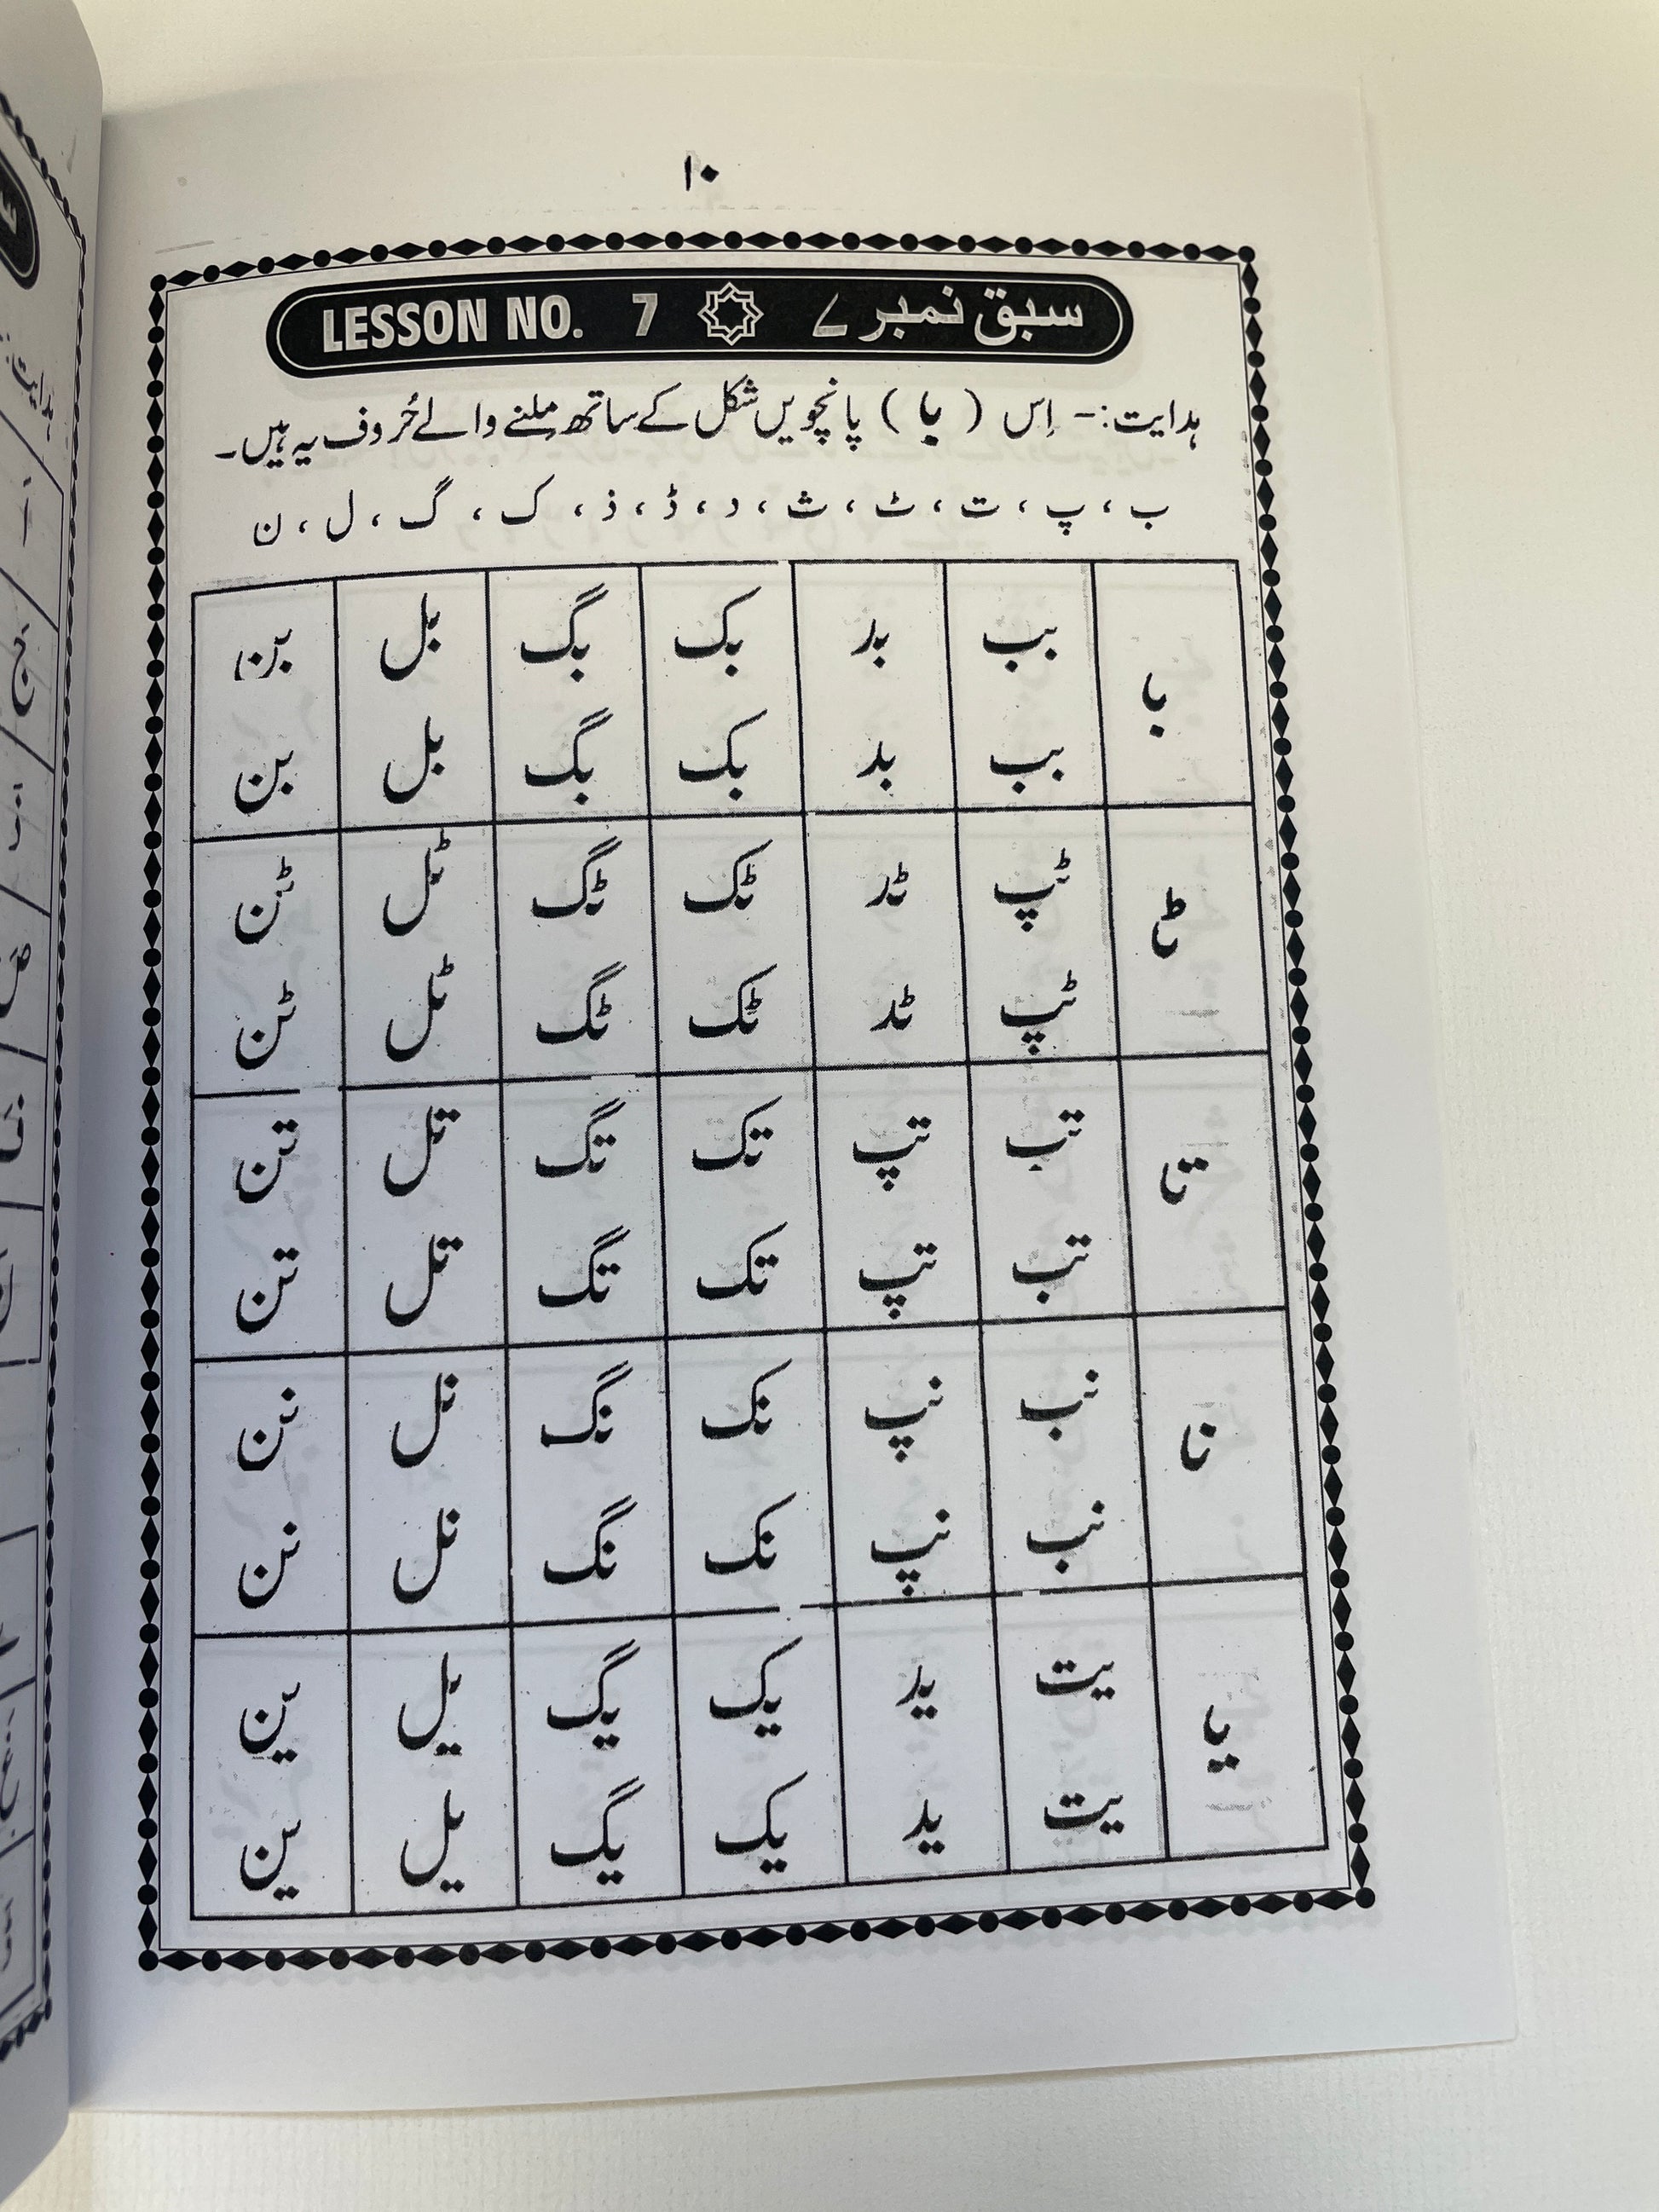 ۱۰
سبق نمبر ۷ LESSON NO. 7
ہدایت:- اِس ( با ) پانچویں شکل کے ساتھ مِلنے والے حُروف یہ ہیں۔
ب ، پ ، ت ، ٹ ، ث ، د ، ڈ ، ذ ، ک ، گ ، ل ، ن
با بب بد بک بگ بل بن
بب بد بک بگ بل بن
ٹپ ٹد ٹک ٹگ ٹل ٹن
ٹپ ٹد ٹک ٹگ ٹل ٹن
تا تب تپ تک تگ تل تن
تب تپ تک تگ تل تن
نا نب نپ نک نگ نل نن
نب نپ نک نگ نل نن
یا یت ید یک یگ یل ین
یت ید یک یگ یل ین